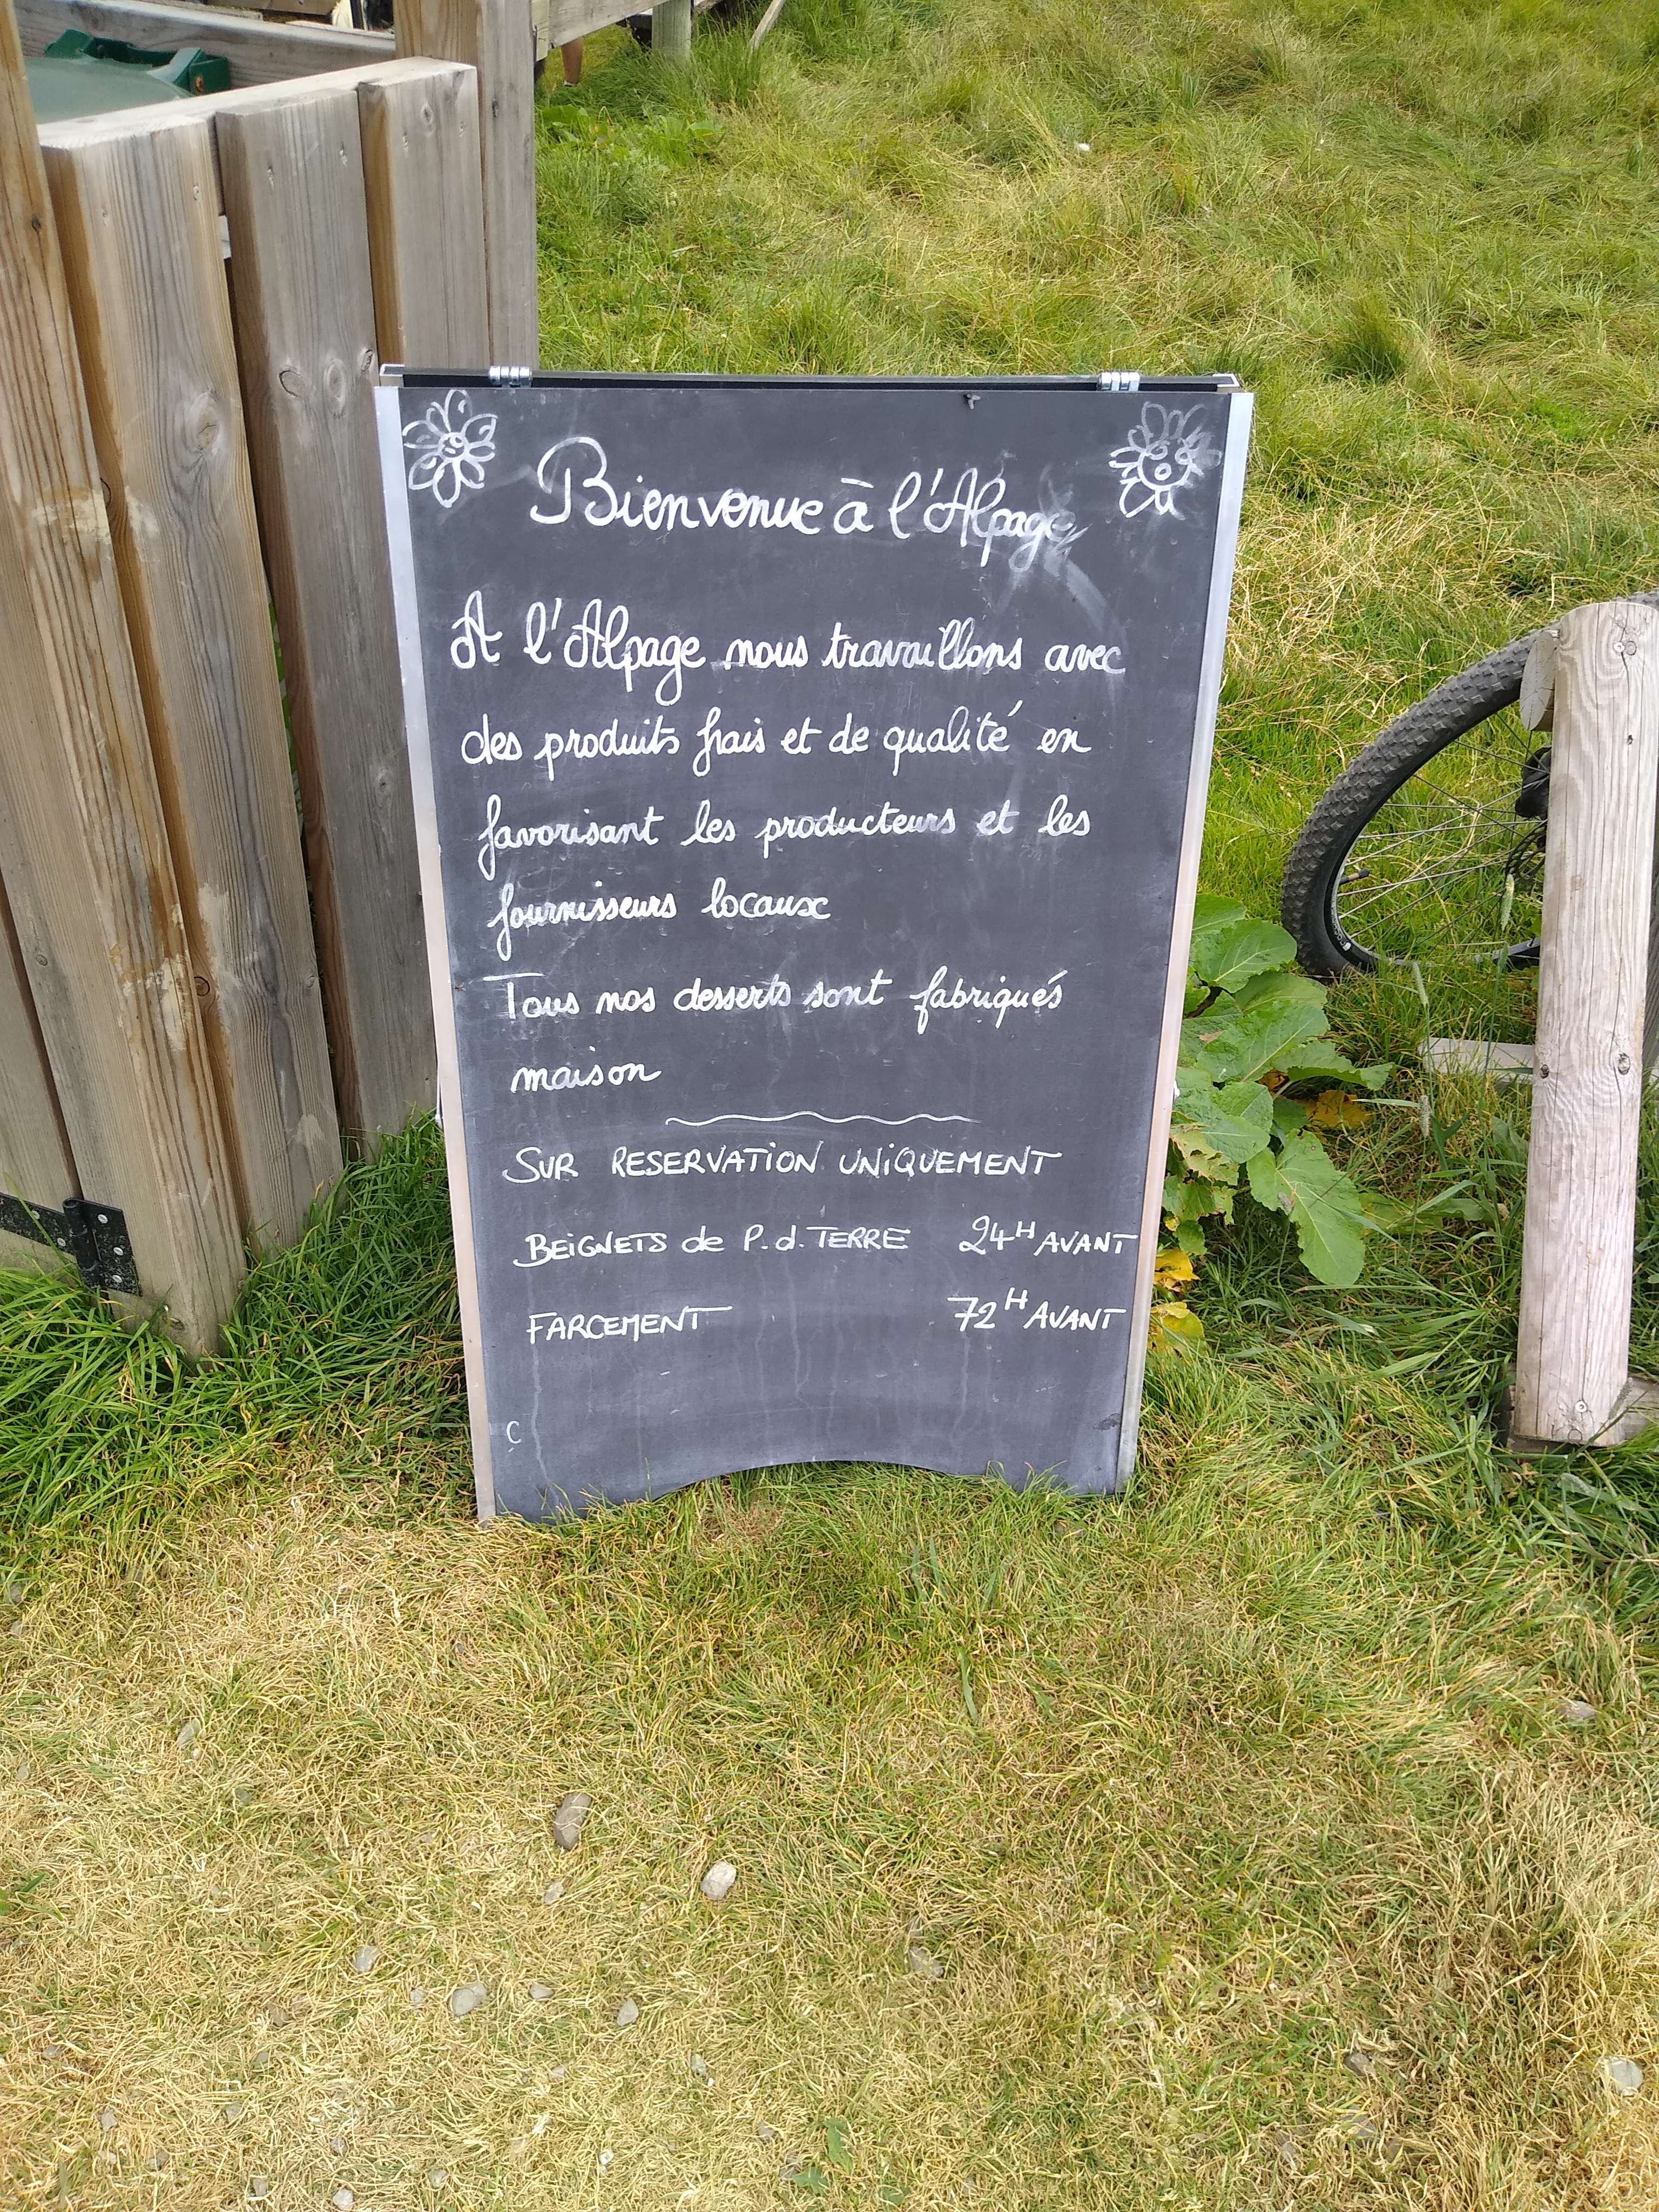 Bienvenue à l'Alpage
A l'Alpage nous travaillons avec
des produits frais et de qualité en
favorisant les producteurs et les
fournisseurs locaux
Tous nos desserts sont fabriqués
maison
SUR RESERVATION UNIQUEMENT
BEIGNETS de P.d.TERRE 24H AVANT
FARCEMENT 72H AVANT
C